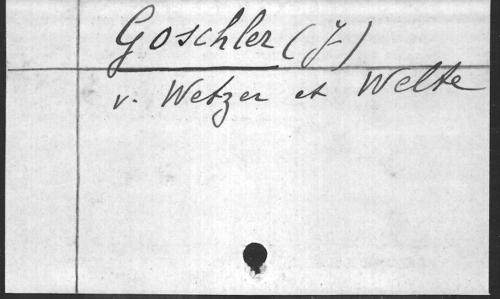 Goschler (J)
v. Wetzer et Welte